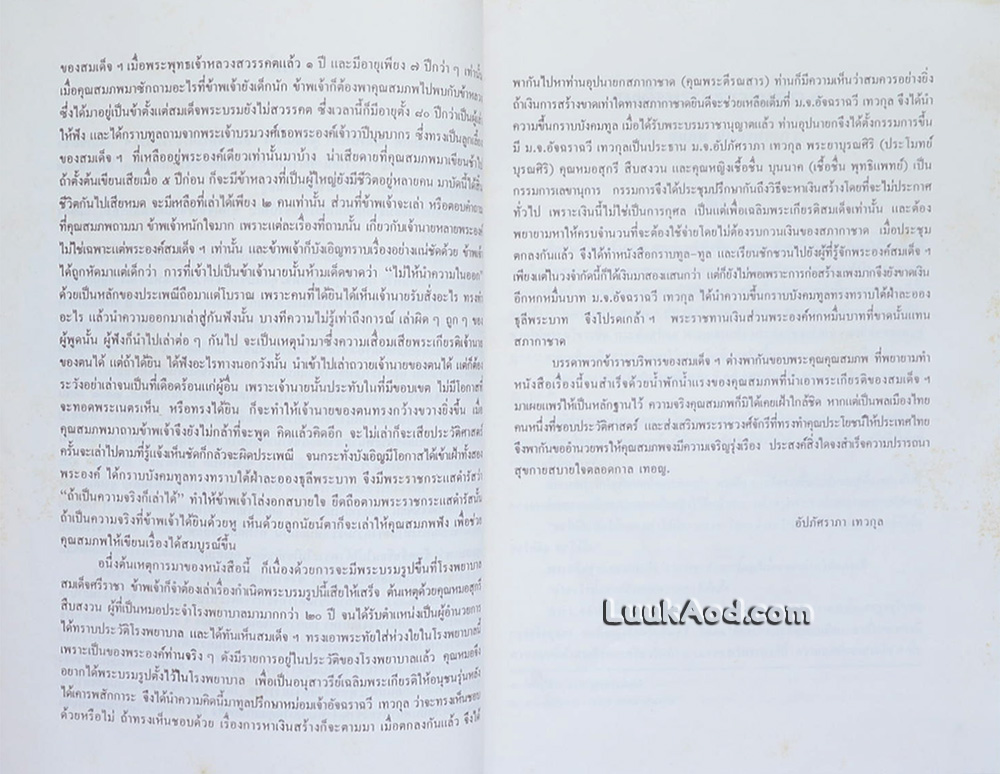 ของสมเด็จ ฯ เมื่อพระพุทธเจ้าหลวงสวรรคตแล้ว ๑ ปี และมีอายุเพียง ๗ ปีกว่า ๆ เท่านั้น
เมื่อคุณสมภพมาซักถามอะไรที่ข้าพเจ้ายังเด็กนัก ข้าพเจ้าก็ต้องพาคุณสมภพไปพบกับข้าหลวง
ซึ่งได้มาอยู่เป็นข้าตั้งแต่สมเด็จพระบรมยังไม่สวรรคต ซึ่งเวลานี้ก็มีอายุตั้ง ๘๐ ปีกว่าเป็นผู้เล่า
ให้ฟัง และได้กราบทูลถามจากพระเจ้าบรมวงศ์เธอพระองค์เจ้าวาปีบุษบากร ซึ่งทรงเป็นลูกเลี้ยง
ของสมเด็จ ฯ ที่เหลืออยู่พระองค์เดียวเท่านั้นมาบ้าง น่าเสียดายที่คุณสมภพมาเขียนช้าไป
ถ้าตั้งต้นเขียนเสียเมื่อ ๕ ปีก่อน ก็จะมีข้าหลวงที่เป็นผู้ใหญ่ยังมีชีวิตอยู่หลายคน มาบัดนี้ได้สิ้น
ชีวิตกันไปเสียหมด จะมีหลือที่เล่าได้เพียง ๒ คนเท่านั้น ส่วนที่ข้าพเจ้าจะเล่า หรือตอบคำถาม
ที่คุณสมภพถามมา ข้าพเจ้าหนักใจมาก เพราะแต่ละเรื่องที่ถามนั้น เกี่ยวกับเจ้านายหลายพระองค์
ไม่ใช่เฉพาะแต่พระองค์สมเด็จ ฯ เท่านั้น และข้าพเจ้าก็บังเอิญทราบเรื่องอย่างแน่ชัดด้วย ข้าพเจ้า
ได้ถูกหัดมาแต่เด็กว่า การที่เข้าไปเป็นข้าเจ้านายนั้นห้ามเด็ดขาดว่า “ไม่ให้นำความในออก”
ด้วยเป็นหลักของประเพณีถือมาแต่โบราณ เพราะคนที่ได้ยินได้เห็นเจ้านายรับสั่งอะไร ทรงทำ
อะไร แล้วนำความออกมาเล่าสู่กันฟังนั้น บางทีความไม่รู้เท่าถึงการณ์ เล่าผิด ๆ ถูก ๆ ของ
ผู้พูดนั้น ผู้ฟังก็นำไปเล่าต่อ ๆ กันไป จะเป็นเหตุนำมาซึ่งความเสื่อมเสียพระเกียรติเจ้านาย
ของตนได้ แต่ถ้าได้ยิน ได้ฟังอะไรทางนอกวังนั้น นำเข้าไปเล่าถวายเจ้านายของตนได้ แต่ก็ต้อง
ระวังอย่าเล่าจนเป็นที่เดือดร้อนแก่ผู้อื่น เพราะเจ้านายนั้นประทับในที่มีขอบเขต ไม่มีโอกาสที่
จะทอดพระเนตรเห็น หรือทรงได้ยิน ก็จะทำให้เจ้านายของตนทรงกว้างขวางยิ่งขึ้น เมื่อ
คุณสมภพมาถามข้าพเจ้าจึงยังไม่กล้าที่จะพูด คิดแล้วคิดอีก จะไม่เล่าก็จะเสียประวัติศาสตร์
ครั้นจะเล่าไปตามที่รู้แจ้งเห็นชัดก็กลัวจะผิดประเพณี จนกระทั่งบังเอิญมีโอกาสได้เข้าเฝ้าทั้งสอง
พระองค์ ได้กราบบังคมทูลทรงทราบใต้ฝ่าละอองธุลีพระบาท จึงมีพระราชกระแสดำรัสว่า
“ถ้าเป็นความจริงก็เล่าได้” ทำให้ข้าพเจ้าโล่งอกสบายใจ ยึดถือตามพระราชกระแสดำรัสนั้น
ถ้าเป็นความจริงที่ข้าพเจ้าได้ยินด้วยหู เห็นด้วยลูกนัยน์ตาก็จะเล่าให้คุณสมภพฟัง เพื่อช่วย
คุณสมภพให้เขียนเรื่องได้สมบูรณ์ขึ้น
อนึ่งต้นเหตุการมาของหนังสือนี้ ก็เนื่องด้วยการจะมีพระบรมรูปขึ้นที่โรงพยาบาล
สมเด็จศรีราชา ข้าพเจ้าก็จำต้องเล่าเรื่องกำเนิดพระบรมรูปนี้เสียให้เสร็จ ต้นเหตุด้วยคุณหมอสุกรี
สืบสงวน ผู้ที่เป็นหมอประจำโรงพยาบาลมามากกว่า ๒๐ ปี จนได้รับตำแหน่งเป็นผู้อำนวยการ
ได้ทราบประวัติโรงพยาบาล และได้ทันเห็นสมเด็จ ฯ ทรงเอาพระทัยใส่ห่วงใยในโรงพยาบาลนี้
เพราะเป็นของพระองค์ท่านจริง ๆ ดังมีรายการอยู่ในประวัติของโรงพยาบาลแล้ว คุณหมอจึง
อยากได้พระบรมรูปตั้งไว้ในโรงพยาบาล เพื่อเป็นอนุสาวรีย์เฉลิมพระเกียรติให้อนุชนรุ่นหลัง
ได้เคารพสักการะ จึงได้นำความคิดนี้มาทูลปรึกษาหม่อมเจ้าอัจฉราฉวี เทวกุล ว่าจะทรงเห็นชอบ
ด้วยหรือไม่ ถ้าทรงเห็นชอบด้วย เรื่องการหาเงินสร้างก็จะตามมา เมื่อตกลงกันแล้ว จึงได้
พากันไปหาท่านอุปนายกสภากาชาด (คุณพระตีรณสาร) ท่านก็มีความเห็นว่าสมควรอย่างยิ่ง
ถ้าเงินการสร้างขาดเท่าใดทางสภากาชาดยินดีจะช่วยเหลือเต็มที่ ม.จ.อัจฉราฉวี เทวกุล จึงได้นำ
ความขึ้นกราบบังคมทูล เมื่อได้รับพระบรมราชานุญาตแล้ว ท่านอุปนายกจึงได้ตั้งกรรมการขึ้น
มี ม.จ.อัจฉราฉวี เทวกุลเป็นประธาน ม.จ.อัปภัศราภา เทวกุล พระยาบุรณศิริ (ประโมทย์
บุรณศิริ) คุณหมอสุกรี สืบสงวน และคุณหญิงเชื้อชื่น บุนนาค (เชื้อชื่น พุทธิแพทย์) เป็น
กรรมการเลขานุการ กรรมการจึงได้ประชุมปรึกษากันถึงวิธีจะหาเงินสร้างโดยที่จะไม่ประกาศ
ทั่วไป เพราะเงินนี้ไม่ใช่เป็นการกุศล เป็นแต่เพื่อเฉลิมพระเกียรติสมเด็จเท่านั้น และต้อง
พยายามหาให้ครบจำนวนที่จะต้องใช้จ่ายโดยไม่ต้องรบกวนเงินของสภากาชาด เมื่อประชุม
ตกลงกันแล้ว จึงได้ทำหนังสือกราบทูล-ทูล และเรียนชักชวนไปยังผู้ที่รู้จักพระองค์สมเด็จ ฯ
เพียงแต่ในวงจำกัดนี้ก็ได้เงินมาสองแสนกว่า แต่ก็ยังไม่พอเพราะการก่อสร้างแพงมากจึงยังขาดเงิน
อีกหกหมื่นบาท ม.จ.อัจฉราฉวี เทวกุล ได้นำความขึ้นกราบบังคมทูลทรงทราบใต้ฝ่าละออง
ธุลีพระบาท จึงโปรดเกล้า ฯ พระราชทานเงินส่วนพระองค์หกหมื่นบาทที่ขาดนั้นแทน
สภากาชาด
บรรดาพวกข้าราชบริพารของสมเด็จ ฯ ต่างพากันขอบพระคุณคุณสมภพ ที่พยายามทำ
หนังสือเรื่องนี้จนสำเร็จด้วยน้ำพักน้ำแรงของคุณสมภพที่นำเอาพระเกียรติของสมเด็จ ฯ
มาเผยแพร่ให้เป็นหลักฐานไว้ ความจริงคุณสมภพก็มิได้เคยเฝ้าใกล้ชิด หากแต่เป็นพลเมืองไทย
คนหนึ่งที่ชอบประวัติศาสตร์ และส่งเสริมพระราชวงศ์จักรีที่ทรงทำคุณประโยชน์ให้ประเทศไทย
จึงพากันขออำนวยพรให้คุณสมภพจงมีความเจริญรุ่งเรือง ประสงค์สิ่งใดจงสำเร็จความปรารถนา
สุขกายสบายใจตลอดกาล เทอญ.
อัปภัศราภา เทวกุล
LuukAod.com